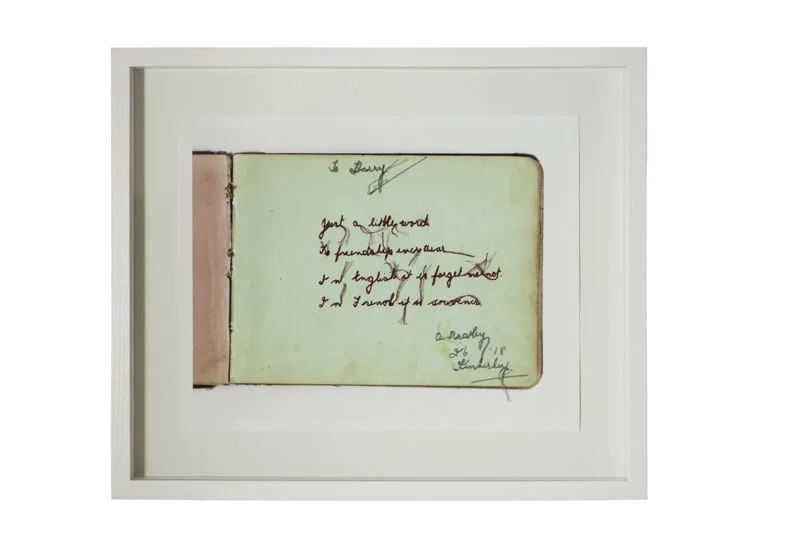 To Harry
Just a little word
To friendship ever dear
In English it is forget me not.
In French it is souvenir.
A Bradley
26 18
Kimberley.